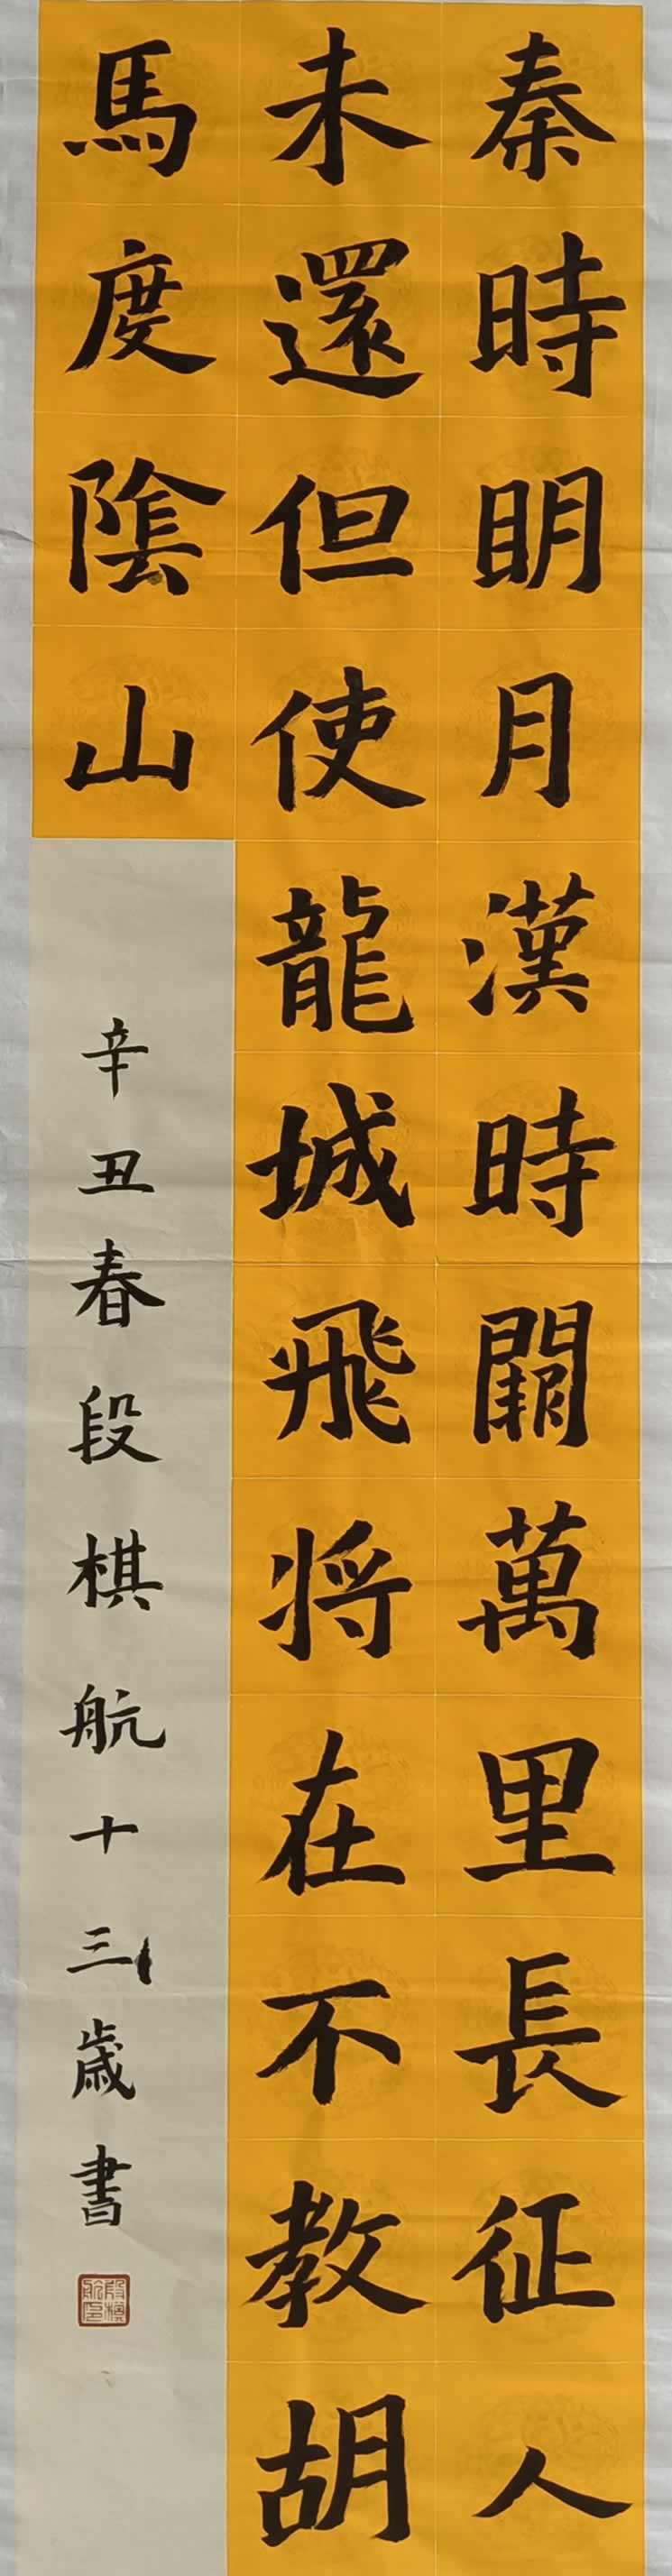 秦時明月漢時關萬里長征人
未還但使龍城飛将在不教胡
馬度陰山
辛丑春段棋航十三歲書